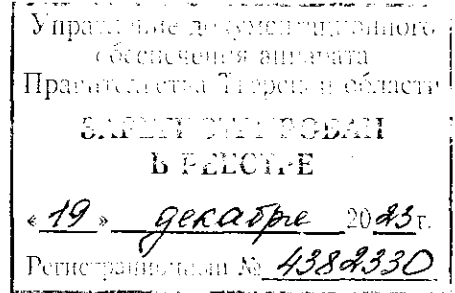 Управление документационного
обеспечения аппарата
Правительства Тверской области
ЗАРЕГИСТРИРОВАН
В РЕЕСТРЕ
«19» декабре 2023г.
Регистрационный № 4382330